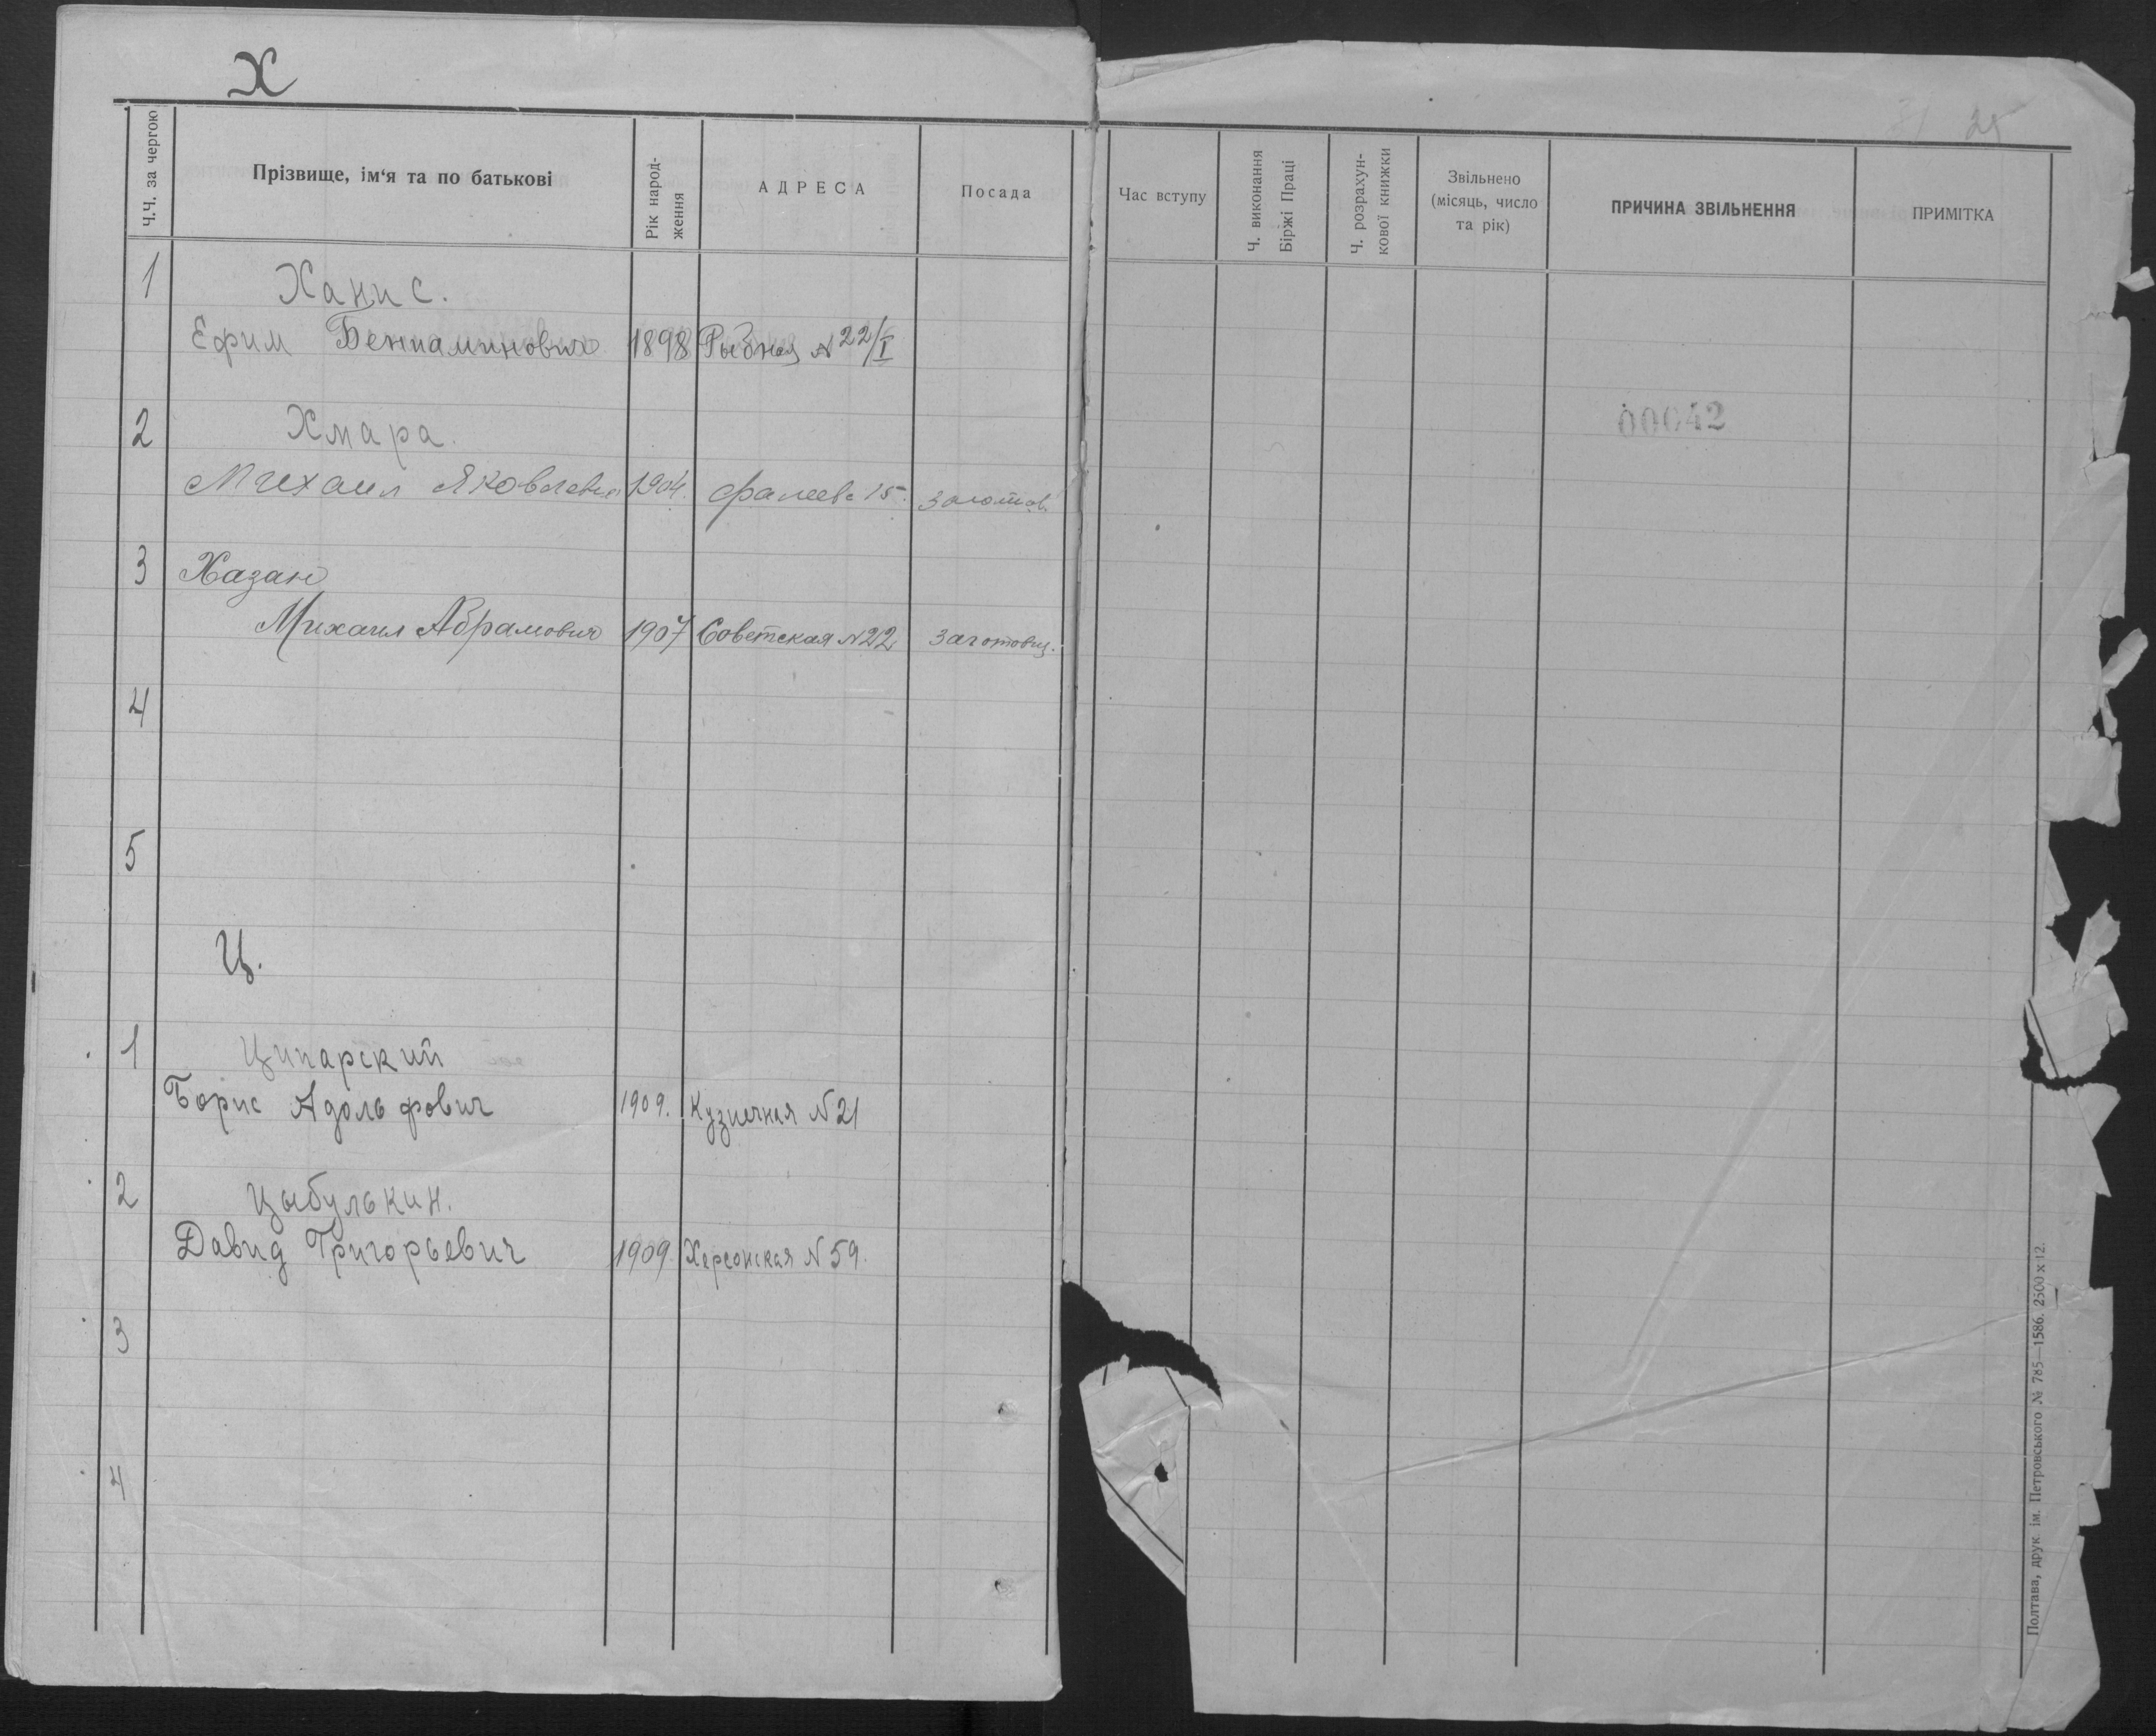 Х
25
Ч.Ч. за чергою
Прізвище, ім'я та по батькові
Рік народ-
ження
АДРЕСА
Посада
Час вступу
Ч. виконання
Біржі Праці
Ч. розрахун-
кової книжки
Звільнено
(місяць, число
та рік)
ПРИЧИНА ЗВІЛЬНЕННЯ
ПРИМІТКА
1 Ханис.
Ефим Бениаминович 1898 Рыбная N 22/I
00042
2 Хмара.
Михаил Яковлевич 1904. Фалеевс 15. заготов.
3 Хазан
Михаил Абрамович 1907 Советская N 22 заготовщ.
4
5
Ц.
1 Ципарский
Борис Адольфович 1909. Кузнечная N 21
2 Цыбулькин.
Давид Григорьевич 1909. Херсонская N 59.
3
4
Полтава, друк ім. Петровського № 785—1586. 2500 x 12.